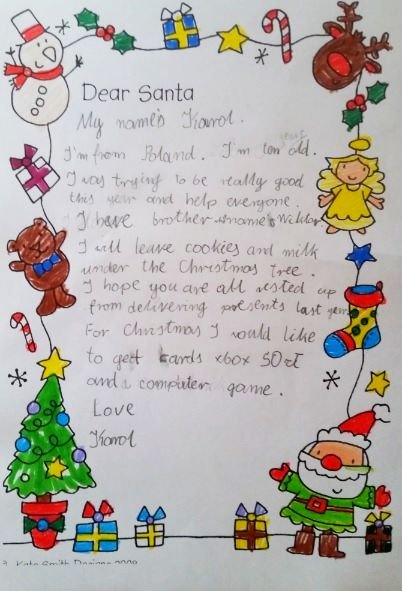 Dear Santa
My name's Karol.
I'm from Poland. I'm ten years old.
I was trying to be really good
this year and help everyone.
I have brother name's
I will leave cookies and milk
under the Christmas tree.
I hope you are all rested up
from delivering presents last year.
For Christmas I would like
to gett cards xbox
and a computer game.
Love
Karol
Kate Smith Designs 2009